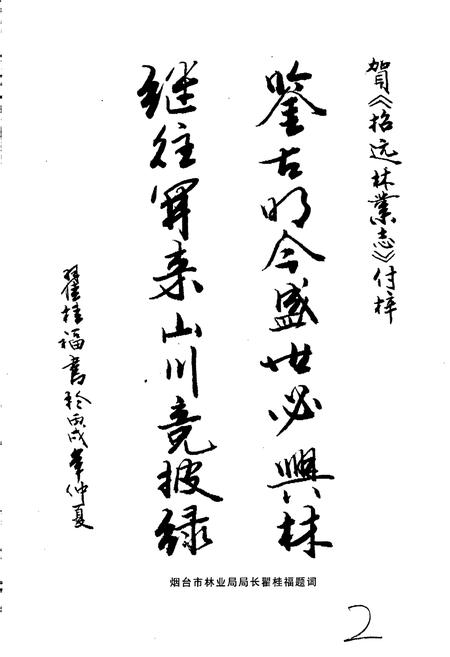 贺《招远林业志》付梓
鉴古明今盛世必興林
继往开来山川竞披绿
翟桂福书於丙戌年仲夏
烟台市林业局局长瞿桂福题词
2